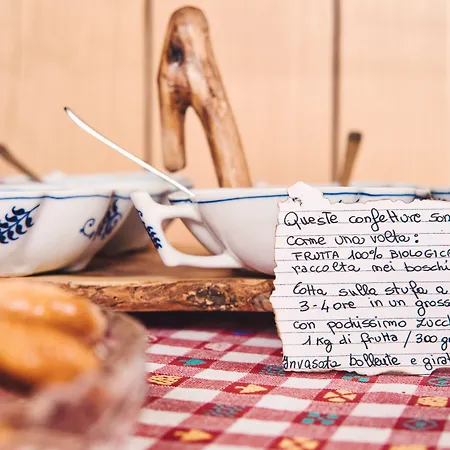 Queste confetture son
come una volta:
FRUTTA 100% BIOLOGIC
raccolta mei boschi
Cotta sulla stufa a
3-4 ore in un gross
con pochissimo zucc
1 Kg di frutta / 300 g
invasata bollente e girat